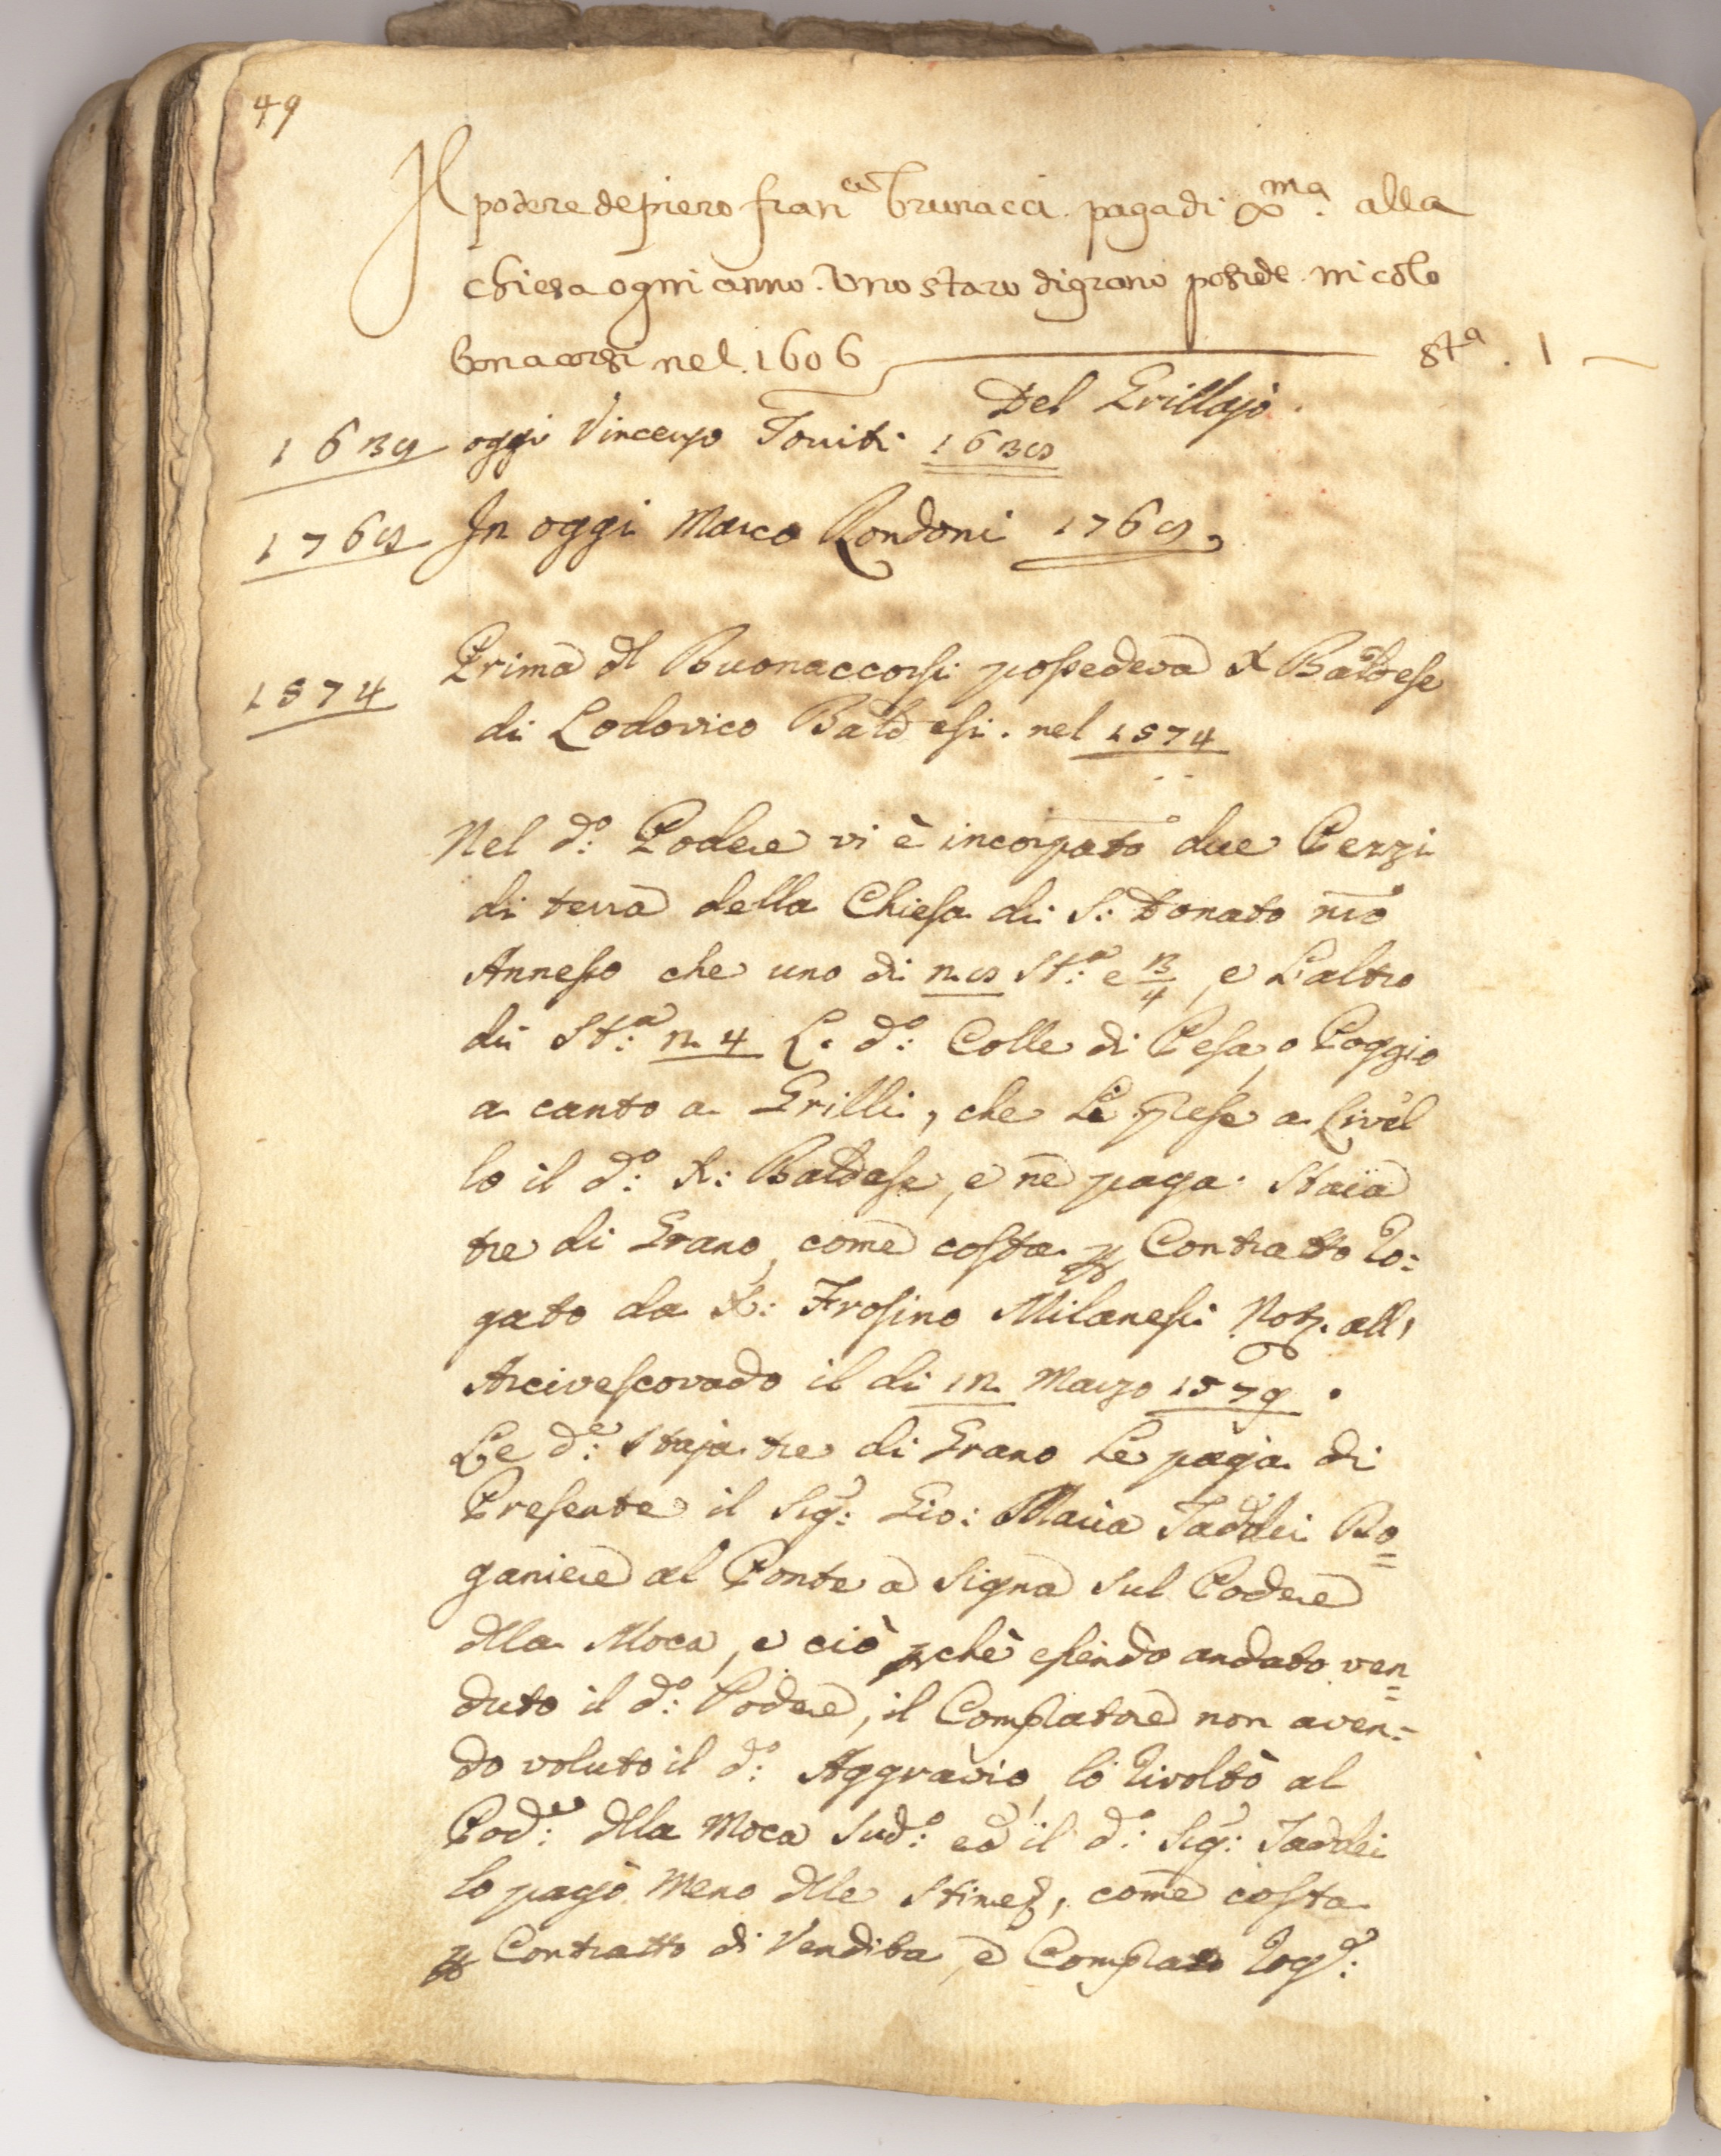 49
Il podere de piero fran.co brunacci. paga di Xma. alla
chiesa ogni anno. Uno staro di grano posiede. nicolo
bonacorsi nel. 1606 — sta. 1 —
Del Grillajo.
1639 oggi Vincenzo Foviti 1639
1769 In oggi Marco Rondoni 1769,
1574 Prima dl Buonaccorsi possedeva Baldese
di Lodovico Baldesi. nel 1574
Nel do: Podere vi è incorpato due Pezzi
di terra della Chiesa di S: Donato mio
Annesso che uno di n. 9 Sta: e 3/4, e L'altro
di Sta: n. 4 L. do: Colle di Pesa, o Poggio
a canto a Grilli, che Le prese a Livel
lo il do: Baldese, e ne paga Staia
tre di Grano, come costa p Contratto Ro:
gato da Frosino Milanesi Not. all'
Arcivescovado il di 12 Marzo 1579.
Le de: Staja tre di Grano Le paga di
Presente il Sig: Gio: Maria Taddei Bo=
ganiere al Ponte a Signa Sul Podere
dlla Moca, e ciò pchè essendo andato ven=
duto il do: Podere, il Compratore non aven=
do voluto il do: Aggravio, lo rivoltò al
Pode: dlla Moca Sudo: ed il do: Sig: Taddei
lo pagò Meno dlle Stime, come costa
p Contratto di Vendita, e Compra Rogo: